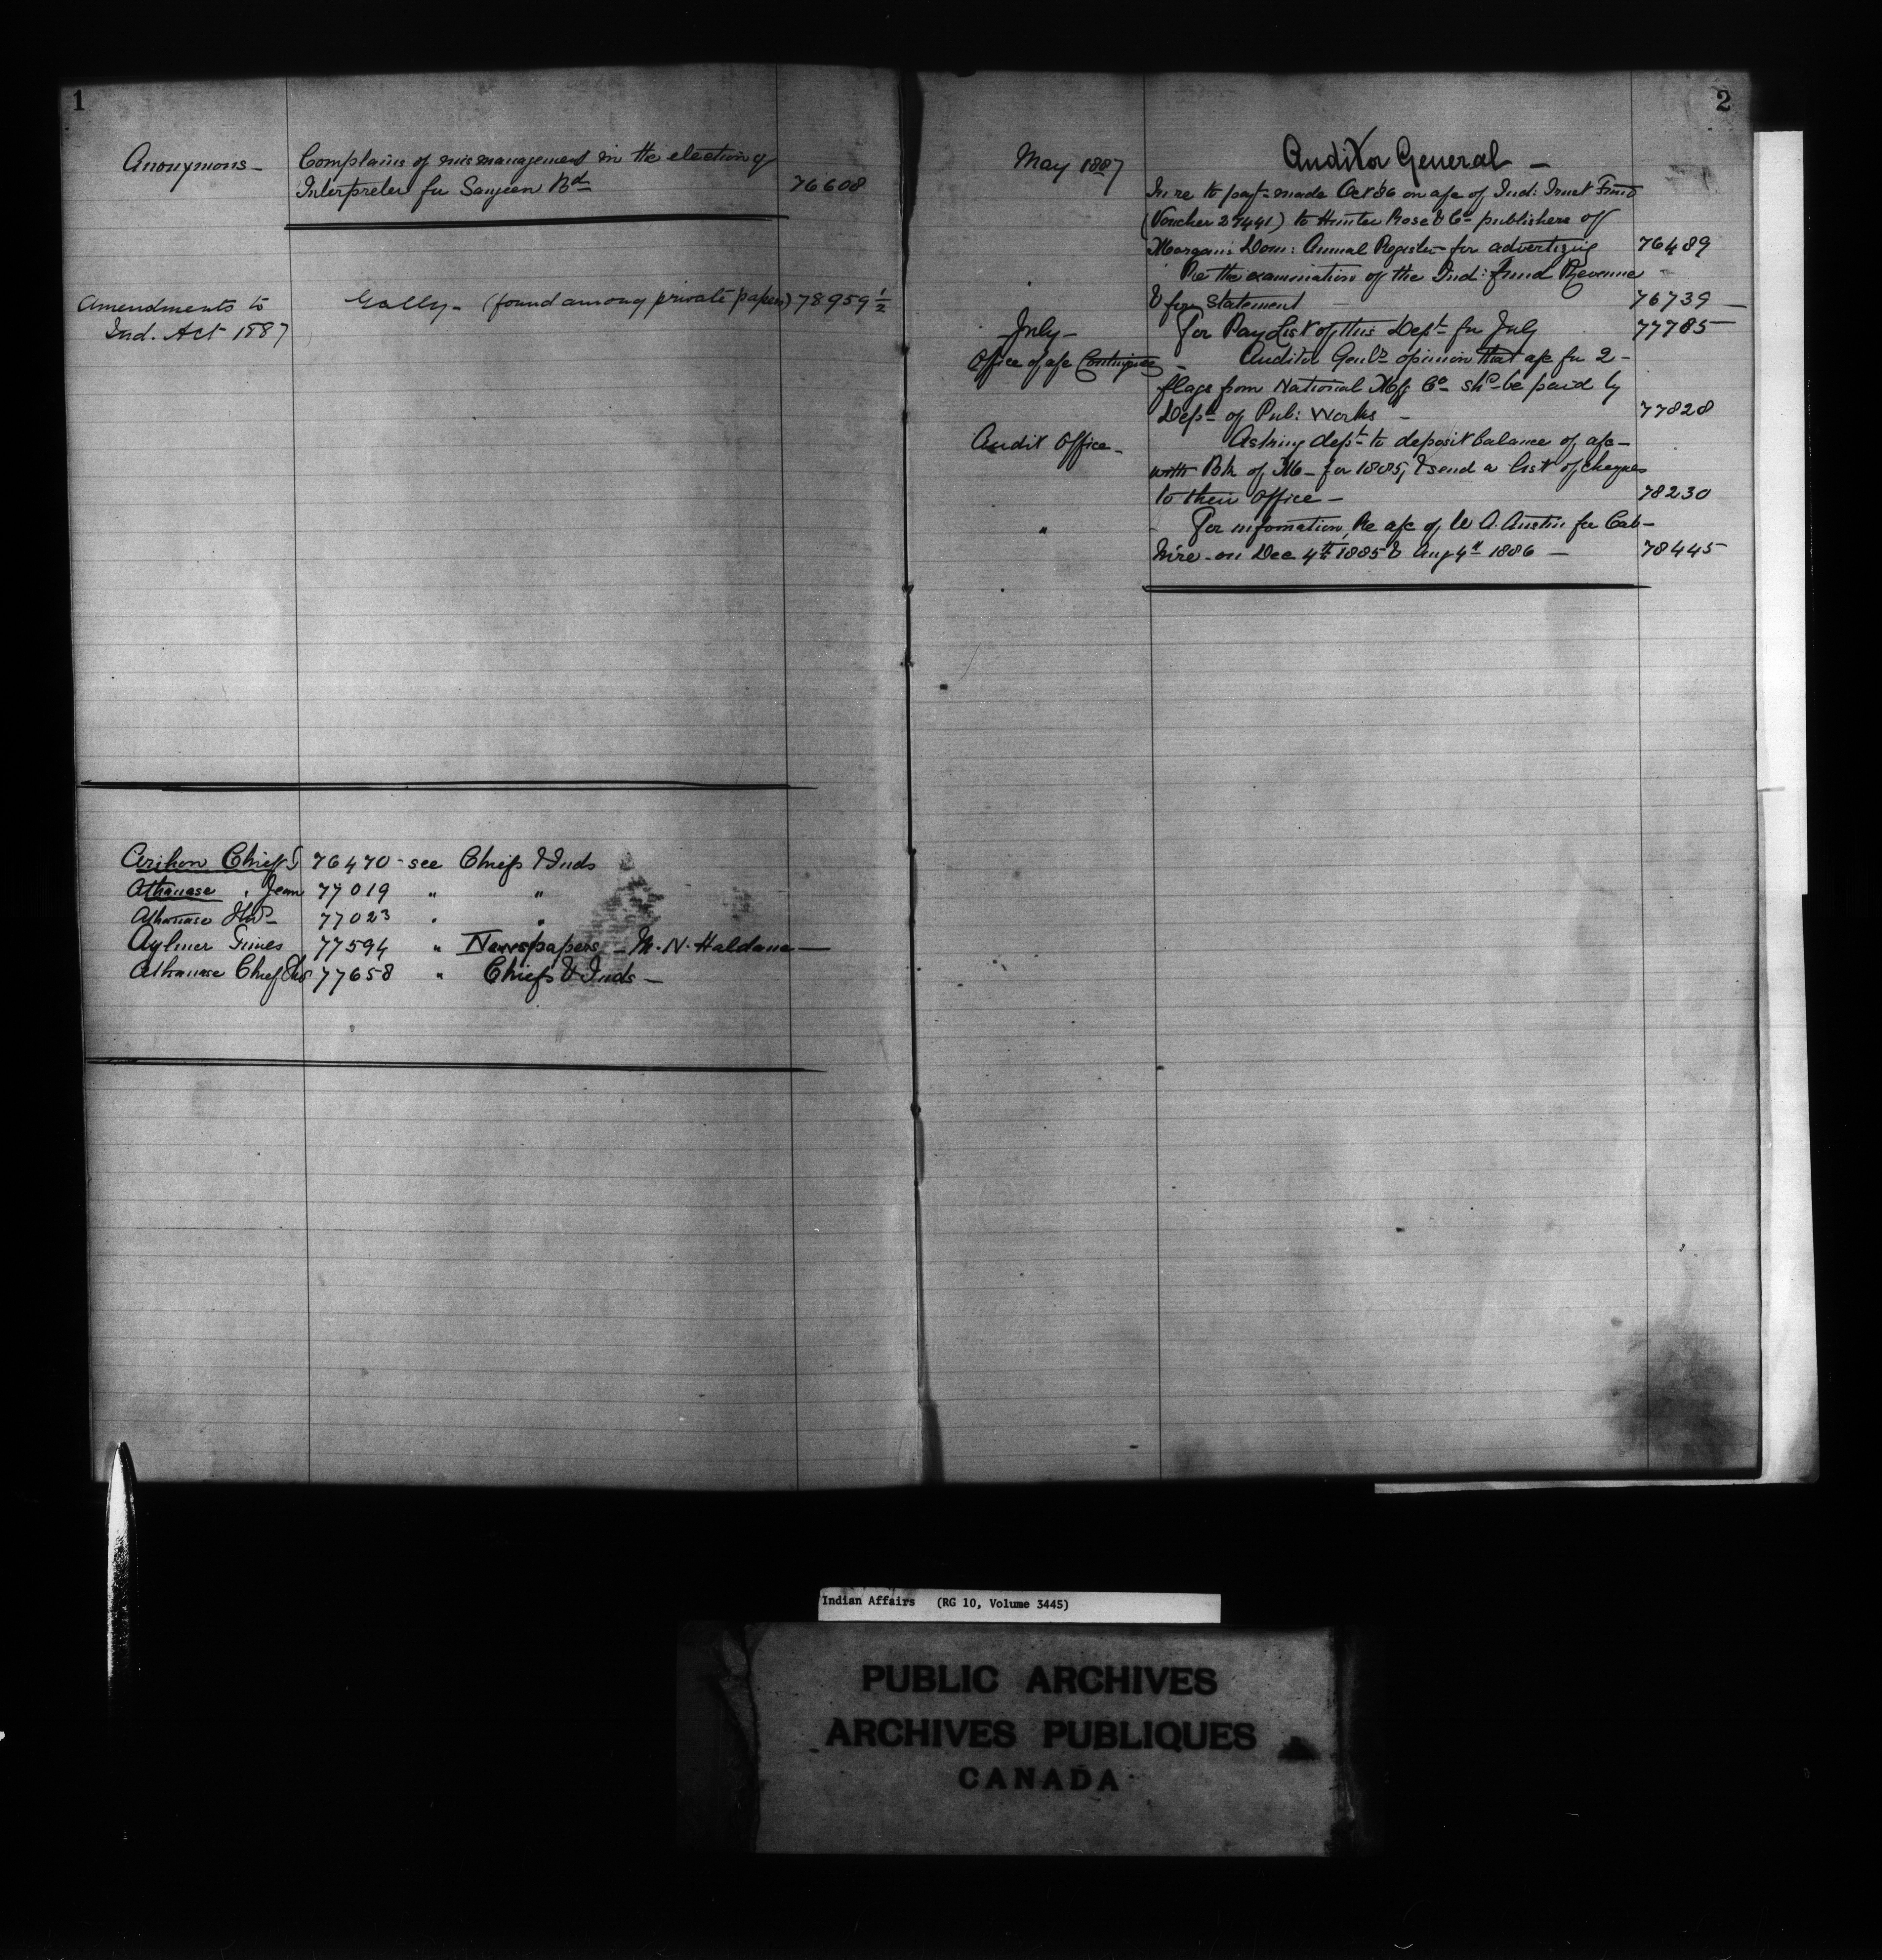 1
Anonymous — Complains of mismanagement in the election of
Interpreter for Saugeen Bd 76608
Amendments to Gally — (found among private papers) 78959 1/2
Ind. Act 1887
Chief 76470 - see Chiefs & Inds
Athanase, Jean 77019 " "
Athanase 77023 " "
Aylmer Times 77594 " Newspapers — M. N. Haldane —
Athanase Chief 77658 " Chiefs & Inds —
2
May 1887 Auditor General —
In re to payt made Oct 86 on a/c of Ind: Trust Fund
(Voucher 27441) to Hunter Rose & Co publishers of
Morgans Dom: Annual Register for advertizing 76489
Re the examination of the Ind: Fund Revenue
& for Statement — 76739 —
July — For Pay List of this Dept for July 77785
Office of a/c Contingies — Auditor Genls opinion that a/c for 2
flags from National Mfg Co shd be paid by
Dept of Pub: Works — 77828
Audit Office — Asking dept to deposit balance of a/c
with Bk of M — for 1885, & send a list of cheques
to their office — 78230
" For information, re a/c of W A. Austin for Cab-
hire — on Dec 4th 1885 & Aug 4th 1886 — 78445
Indian Affairs (RG 10, Volume 3445)
PUBLIC ARCHIVES
ARCHIVES PUBLIQUES
CANADA